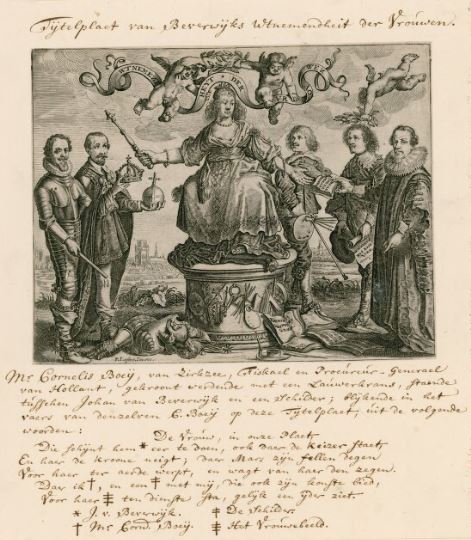 Tijtelplaet van Beverwijks Wtnemendheit der Vrouwen.
WTNEMEN HEYT DES
Mr Cornelis Boeij, van Zirkzee, Fiskael en Procureur-Generael
van Hollant, gekroont werdende met een Lauwerkrans, staende
tusschen Johan van Beverwijk en een Schilder; blijkende in het
vaers van denzelven C. Boeij op deze Tijtelplaet, uit de volgende
woorden:
De Vrouw, in onze Plaet,
Die schijnt hem * eer te doen, ook daer de keizer staet,
En haer de kroone neigt; daer Mars zijn fellen degen
Voor haer ter aerde werpt, en wagt van haer den zegen.
Daer ik †, en een ‡ met mij, die ook zijn konste bied,
Voor haer ten dienste sta, gelijk een ijder ziet.
* J. v. Beverwijk. ‡ De Schilder.
† Mr Corn. Boeij. Het Vrouwebeeld.